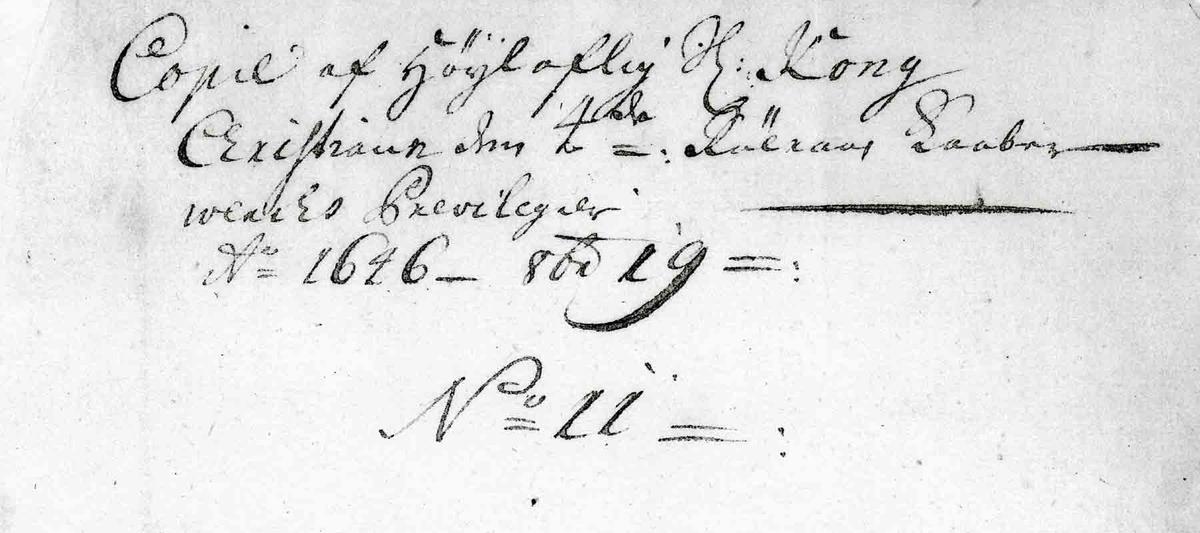 Copie af Höÿloflig H: Kong
Christian den 4de =: Röraas Kaaber
wercks Previlegier
Ao 1646 – 8bd 19 =:
No 11 =: